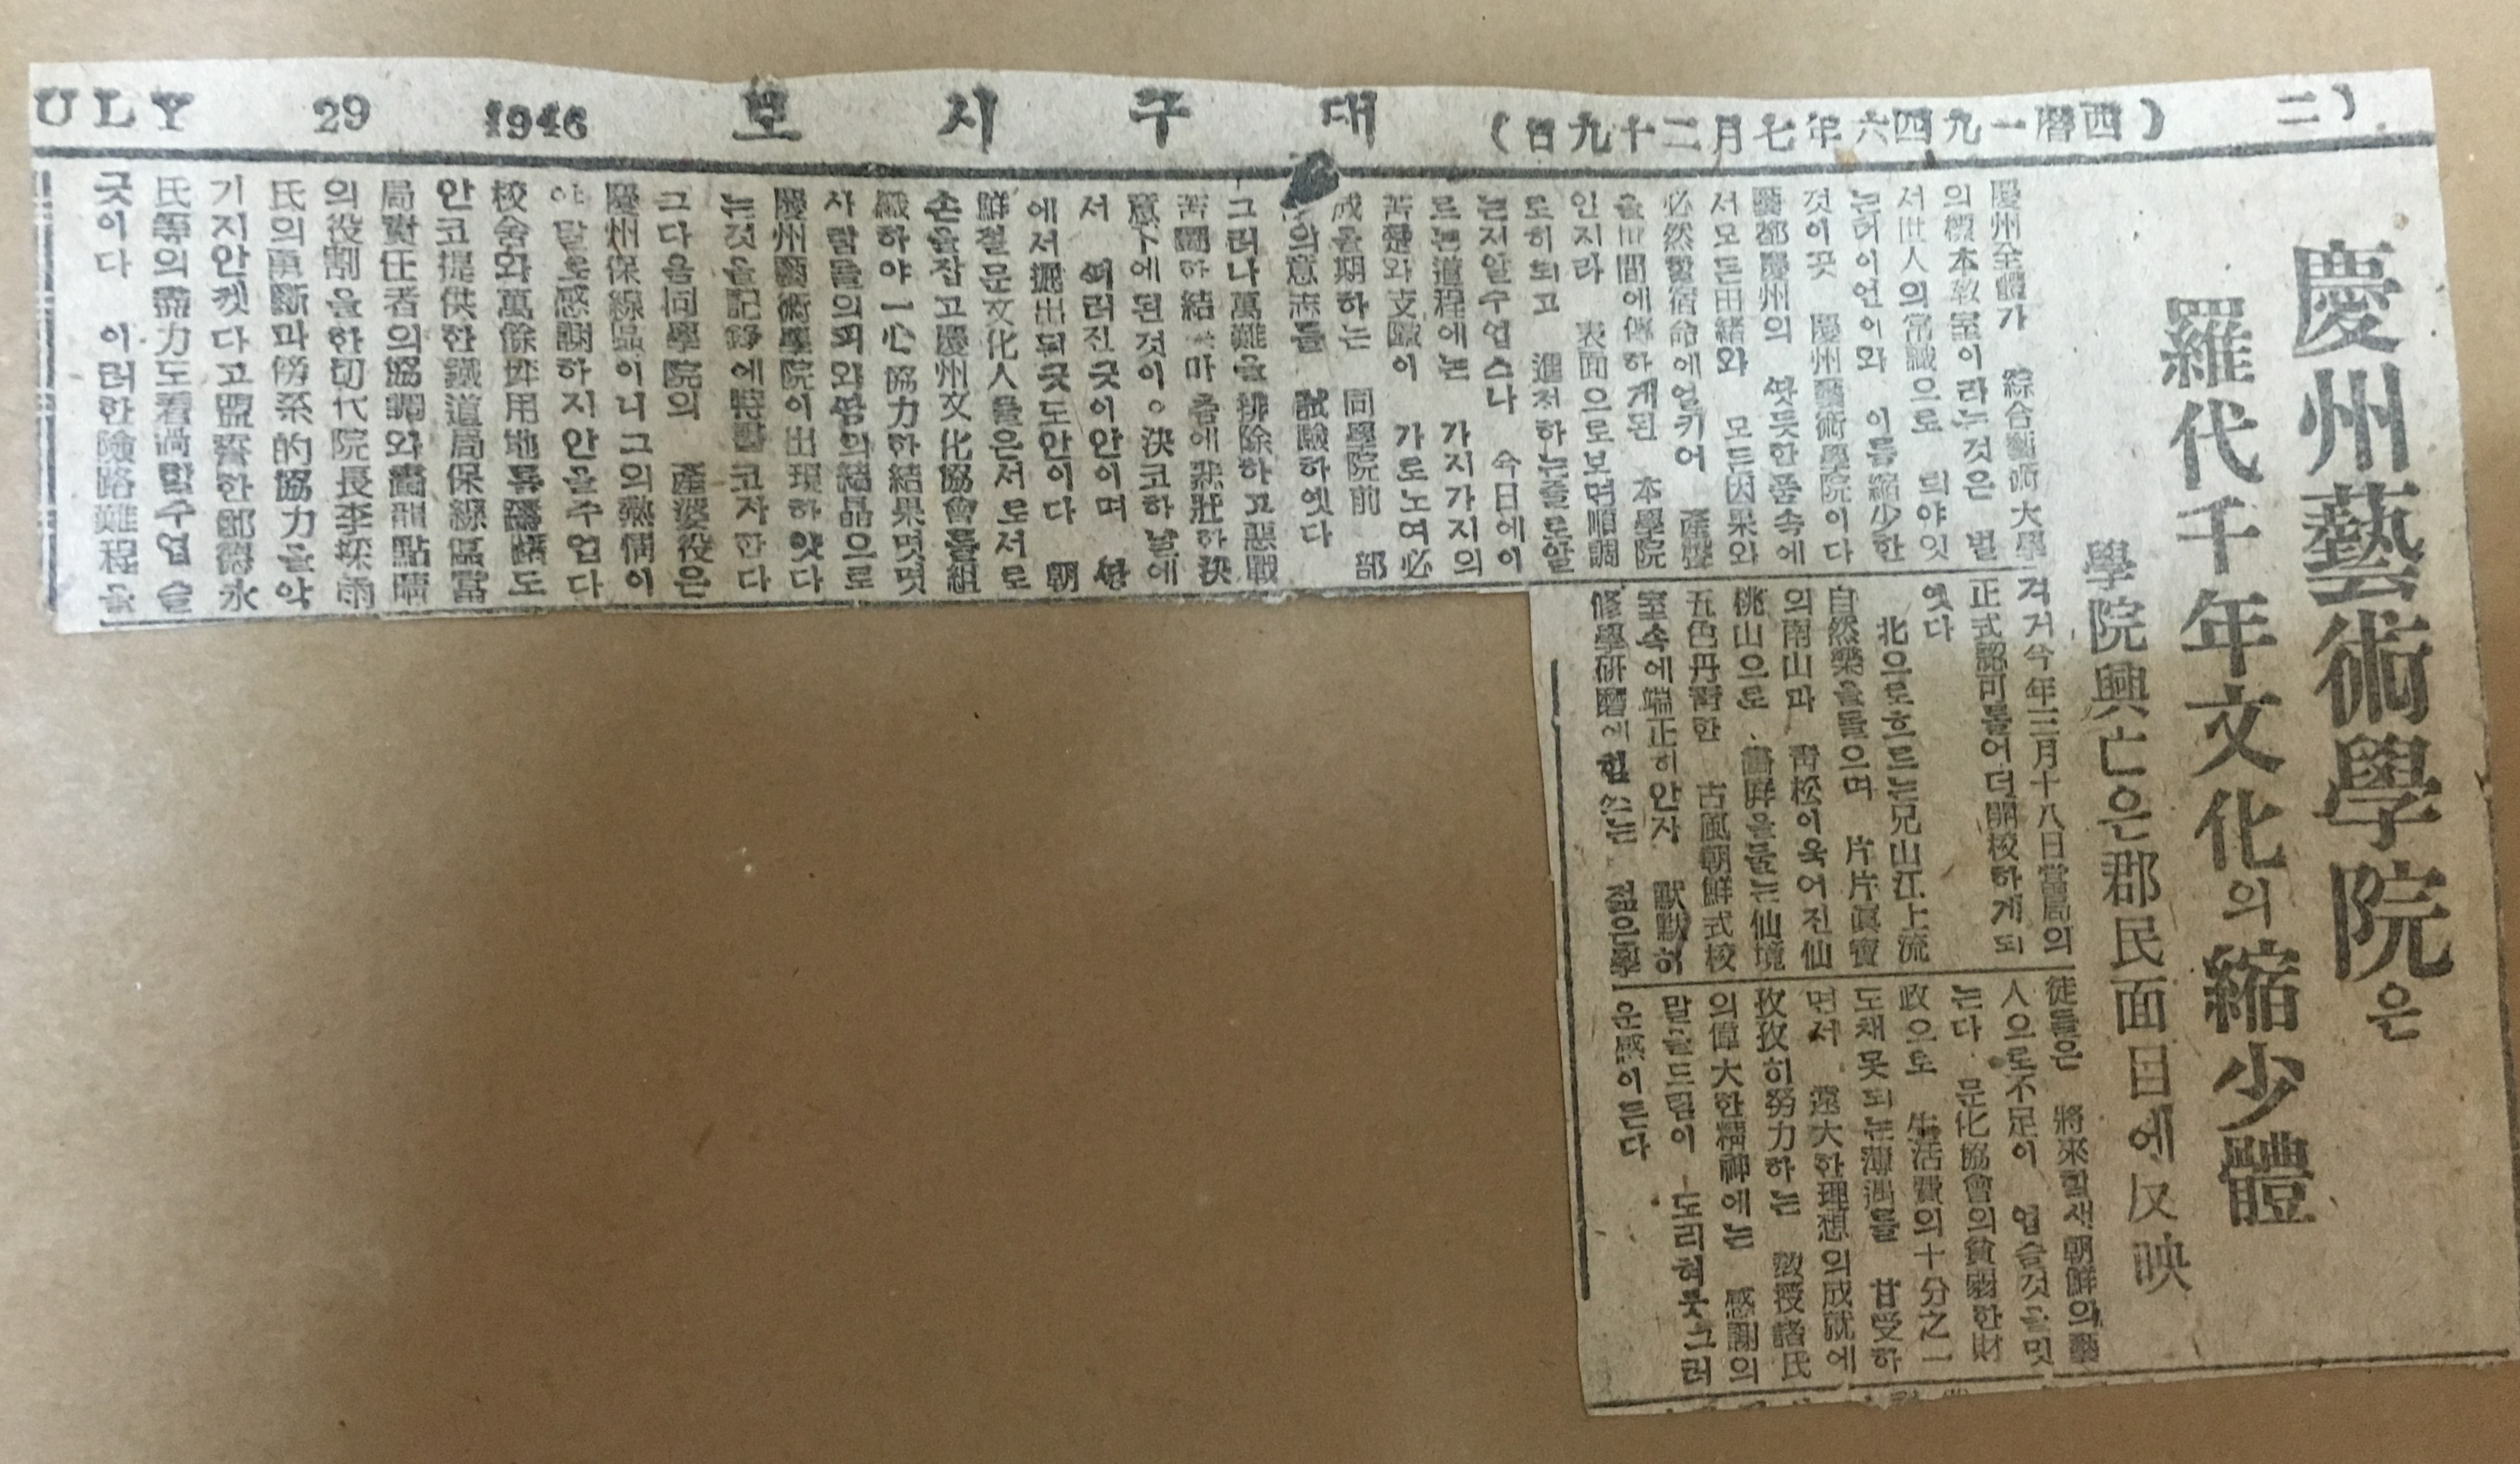 (二) (西曆一九四六年七月二十九日) 대구시보 ULY 29 1946
慶州藝術學院은
羅代千年文化의縮少體
學院興亡은郡民面目에反映
慶州全體가 綜合藝術大學
의標本敎室이라는것은 벌
서世人의常識으로 되야잇
는터이언이와 이를縮少한
것이곳 慶州藝術學院이다
藝都慶州의 싸듯한품속에
서모든由緖와 모든因果와
必然宿命에얼키어 産聲
을世間에傳하게된 本學院
인지라 表面으로보면順調
로히되고 進전하는줄로알
는지알수업스나 今日에이
르는道程에는 가지가지의
苦楚와支障이 가로노여必
成을期하는 同學院前 部
의意志를 試驗하엿다
그러나萬難을排除하고惡戰
苦鬪한結 마츰에悲壯한決
意下에된것이。決코하날에
서 써러진긋이안이며 싸
에서掘出된긋도안이다 朝
鮮젊문文化人들은서로서로
손을잡고慶州文化協會를組
織하야一心協力한結果몃몃
사람들의피와쌈의結晶으로
慶州藝術學院이出現하얏다
는것을記錄에特書코자한다
그다음同學院의 産婆役은
慶州保線區이니그의熱情이
야말로感謝하지안을수업다
校舍와萬餘坪用地를躊躇도
안코提供한鐵道局保線區當
局責任者의協調와畵龍點睛
의役割을한初代院長李採雨
氏의勇斷과傍系的協力을악
기지안켓다고盟誓한 永
氏等의盡力도看過할수업슬
긋이다 이러한險路難程을
겨거今年三月十八日當局의
正式認可를어더開校하게되
엿다
北으로흐르는兄山江上流
自然樂을들으며 片片眞寶
의南山과 靑松이욱어진仙
桃山으로 畵屛을둘는仙境
五色丹靑한 古風朝鮮式校
室속에端正히안자 默默히
修學硏磨에힘쓰는 젊은學
徒들은 將來할새朝鮮의藝
人으로不足이 업슬것을밋
는다 文化協會의貧弱한財
政으로 生活費의十分之一
도채못되는薄遇를 甘受하
면서 遠大한理想의成就에
孜孜히努力하는 敎授諸氏
의偉大한精神에는 感謝의
말을드림이 도리혀붓그러
운感이든다